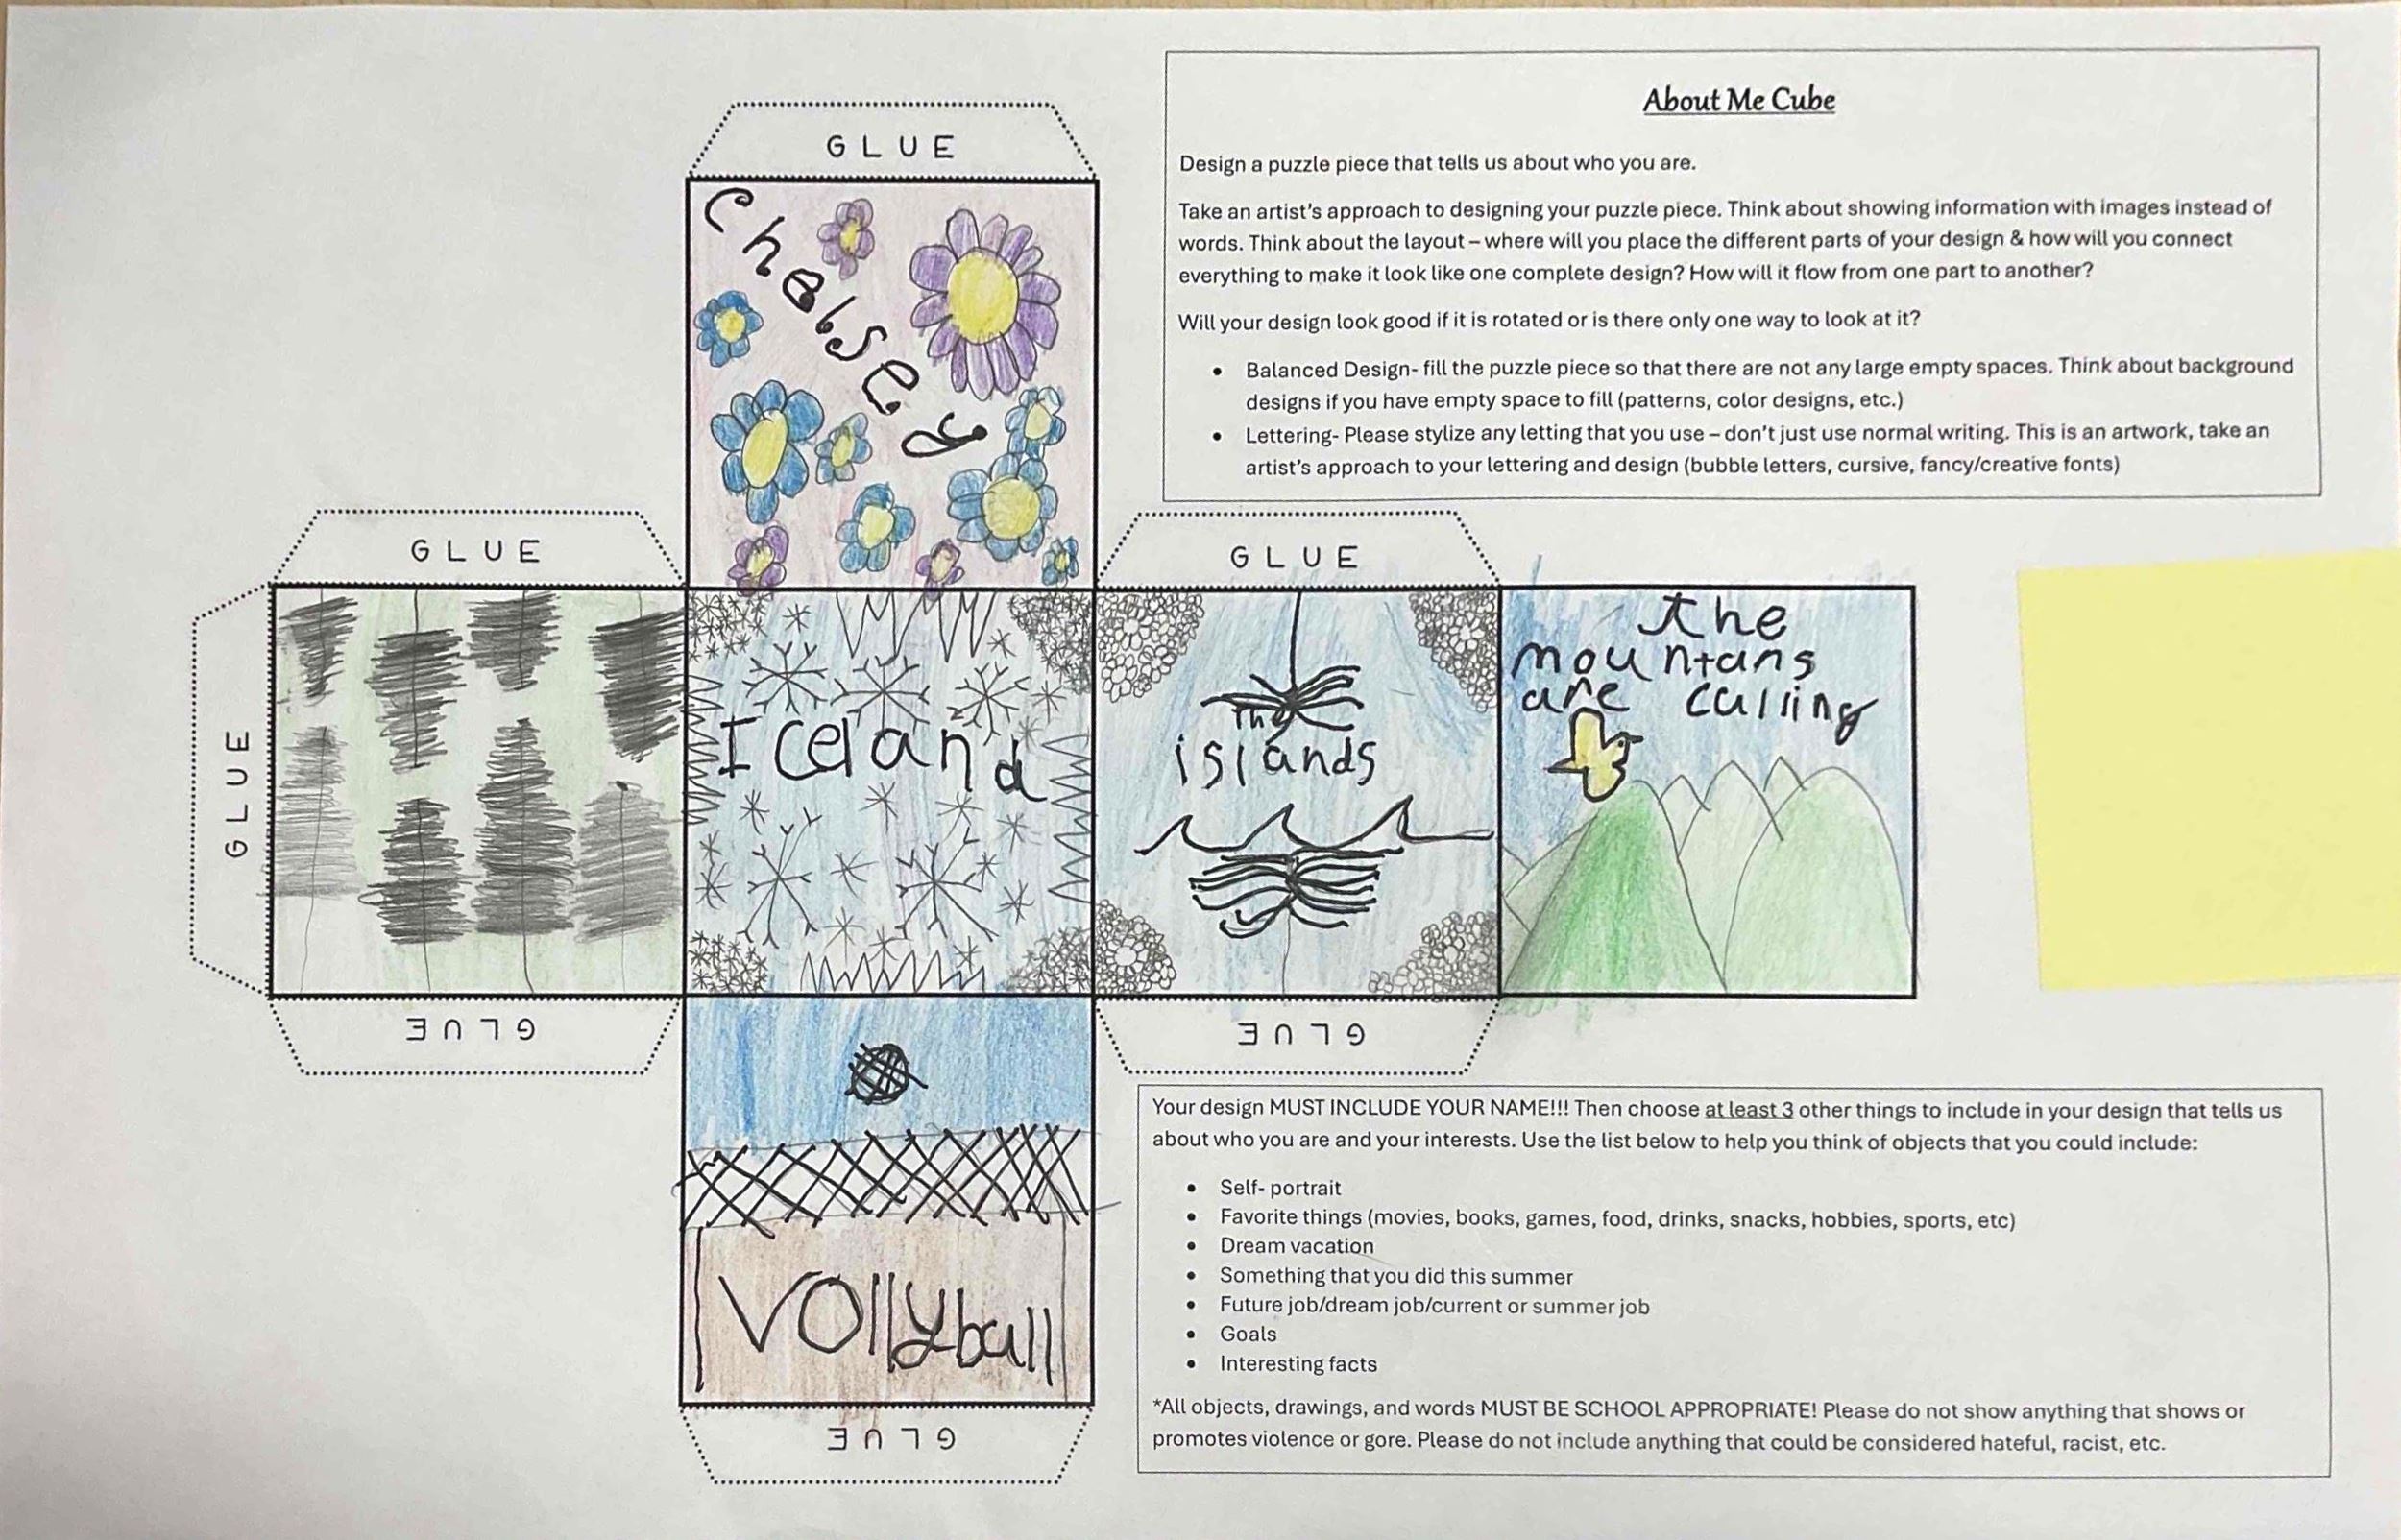 About Me Cube
Design a puzzle piece that tells us about who you are.
Take an artist's approach to designing your puzzle piece. Think about showing information with images instead of
words. Think about the layout – where will you place the different parts of your design & how will you connect
everything to make it look like one complete design? How will it flow from one part to another?
Will your design look good if it is rotated or is there only one way to look at it?
• Balanced Design- fill the puzzle piece so that there are not any large empty spaces. Think about background
designs if you have empty space to fill (patterns, color designs, etc.)
• Lettering- Please stylize any letting that you use – don't just use normal writing. This is an artwork, take an
artist's approach to your lettering and design (bubble letters, cursive, fancy/creative fonts)
GLUE
Chelsey
GLUE
GLUE
GLUE
Iceland
The
islands
the
mountans
are calling
GLUE
GLUE
Vollyball
GLUE
Your design MUST INCLUDE YOUR NAME!!! Then choose at least 3 other things to include in your design that tells us
about who you are and your interests. Use the list below to help you think of objects that you could include:
• Self- portrait
• Favorite things (movies, books, games, food, drinks, snacks, hobbies, sports, etc)
• Dream vacation
• Something that you did this summer
• Future job/dream job/current or summer job
• Goals
• Interesting facts
*All objects, drawings, and words MUST BE SCHOOL APPROPRIATE! Please do not show anything that shows or
promotes violence or gore. Please do not include anything that could be considered hateful, racist, etc.